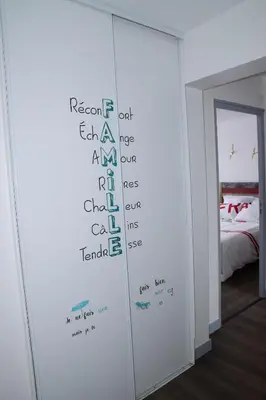 RéconFort
ÉchAnge
AMour
Rires
ChaLeur
CâLins
TendrEsse
Je ne fais
mais je
fais bien